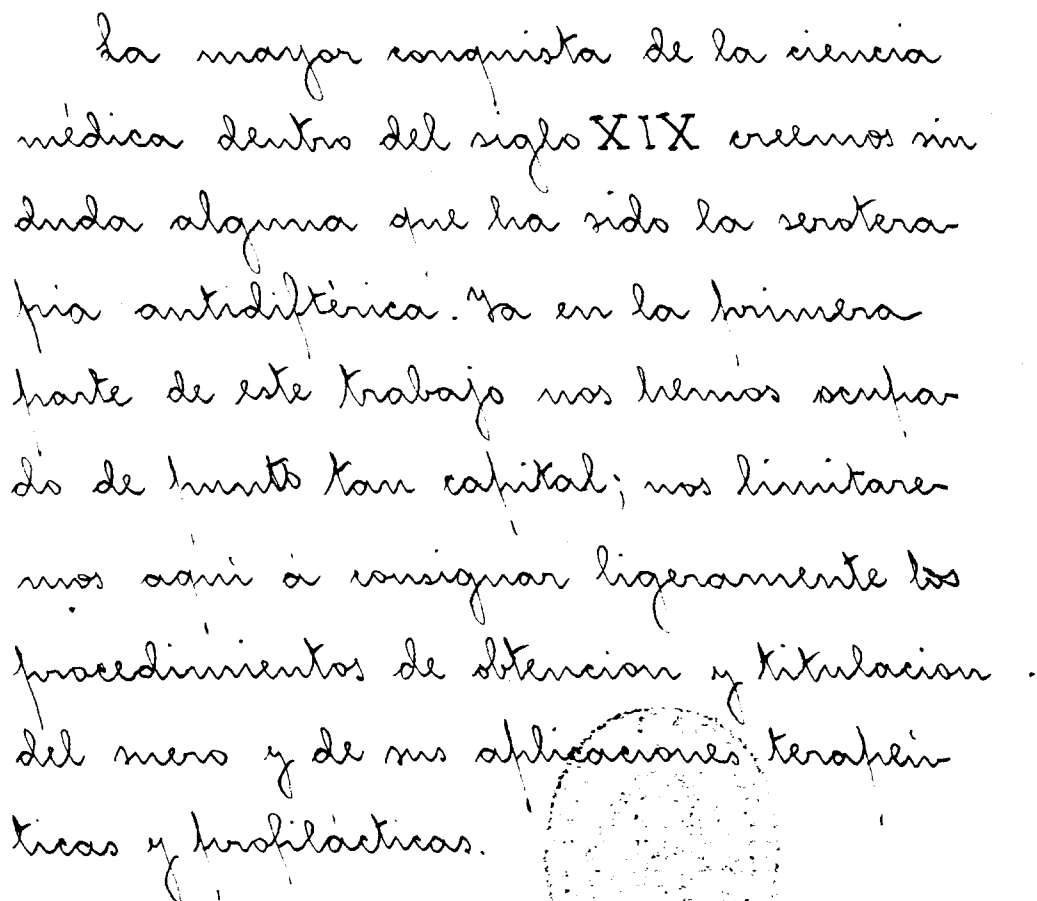 La mayor conquista de la ciencia
médica dentro del siglo XIX creemos sin
duda alguna que ha sido la serotera-
pia antidiftérica. Ya en la primera
parte de este trabajo nos hemos ocupa-
do de punto tan capital; nos limitare-
mos aquí á consignar ligeramente los
procedimientos de obtencion y titulacion
del suero y de sus aplicaciones terapéu-
ticas y profilácticas.